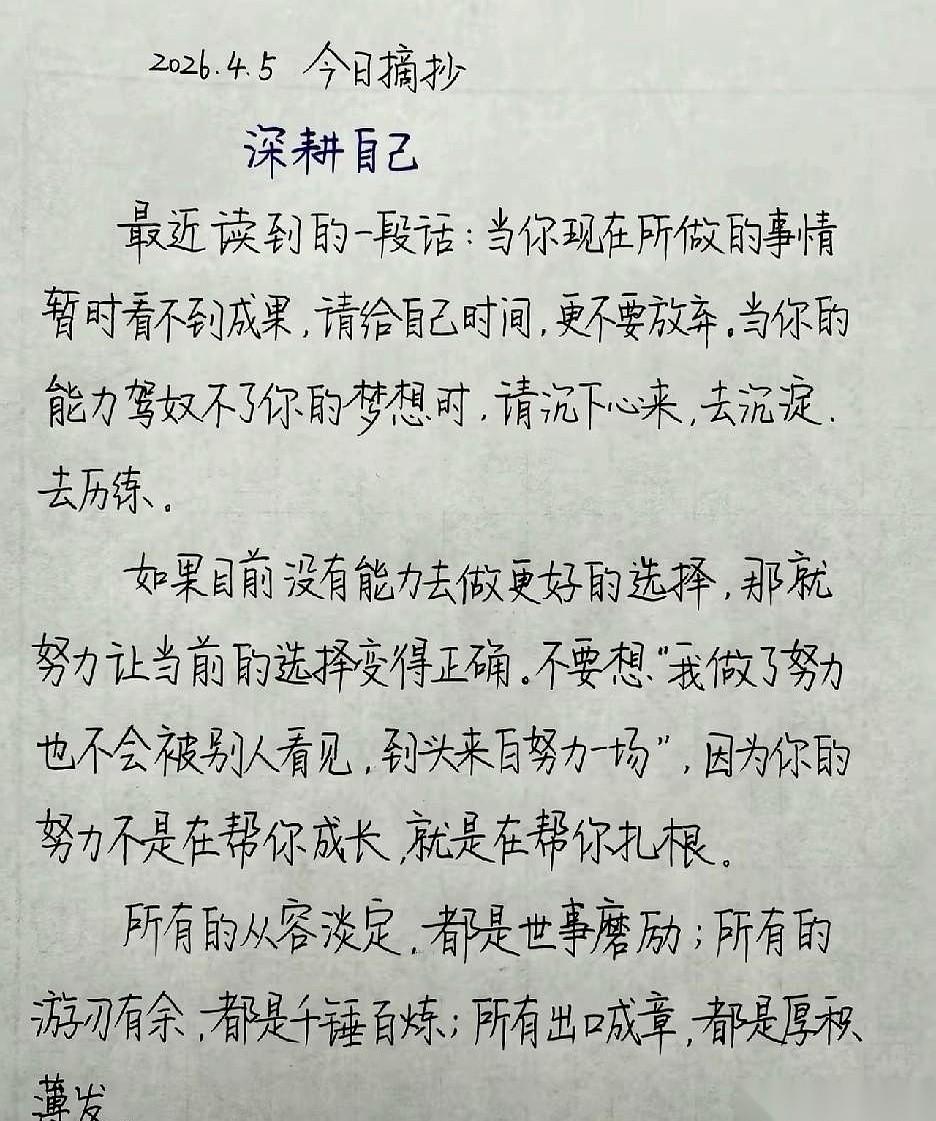 2026.4.5 今日摘抄
深耕自己
最近读到的一段话:当你现在所做的事情
暂时看不到成果,请给自己时间,更不要放弃。当你的
能力驾奴不了你的梦想时,请沉下心来,去沉淀.
去历练、。
如果目前没有能力去做更好的选择,那就
努力让当前的选择变得正确。不要想“我做了努力
也不会被别人看见,到头来白努力一场”,因为你的
努力不是在帮你成长,就是在帮你扎根。
所有的从容淡定,都是世事磨励;所有的
游刃有余,都是千锤百炼;所有出口成章,都是厚积
薄发